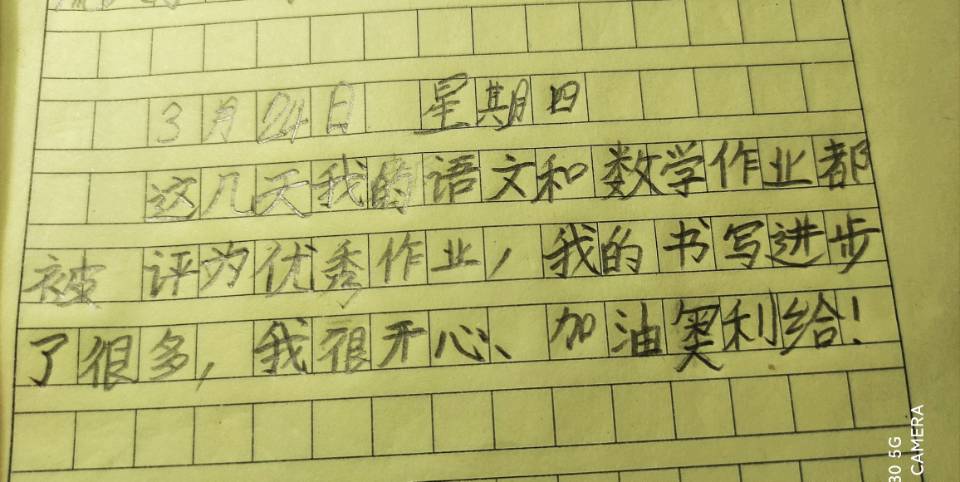 3月24日 星期四
这几天我的语文和数学作业都
被评为优秀作业，我的书写进步
了很多，我很开心、加油奥利给！
30 5G
CAMERA